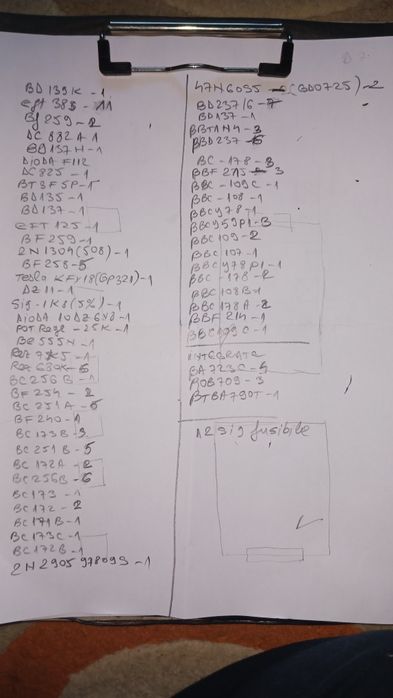 BD 139K - 1
eft 383 - 11
Bf 259 - 2
DC 882 A 1
BD 137 H - 1
DiODA F112
DC 825 - 1
BT 8F 5P - 1
BD135 - 1
BD 137 - 1
EFT 125 - 1
BF 259 - 1
2N 1304 (508) - 1
BF 258 - 5
Tesla KFY18 (GP321) - 1
DZ 11 - 1
Sig - 1K8 (5%) - 1
DiODA 10DZ6V8 - 1
POT Regl - 25K - 1
BE 555N - 1
Rez 7K5 - 1
Rez 680K - 5
BC 256 B - 1
BF 254 - 2
BC 251 A - 5
BF 240 - 1
BC 173 B - 3
BC 251 B - 5
BC 172A - 2
BC 256B - 6
BC 173 - 1
BC 172 - 2
BC 171B - 1
BC 173C - 1
BC 172B - 1
2N 2905 97809S - 1
47N6055 (BD0725) - 2
BD 237/6 - 7
BD 137 - 1
BBT1N4 - 3
BBD 237 - 5
BC - 178 - 3
BBF 215 - 3
BBC - 109C - 1
BBC - 108 - 1
BBCY78 - 1
BBCY59P1 - 3
BBC 109 - 2
BBC 107 - 1
BBCY78 P1 - 1
BBC - 178 - 2
BBC 108B - 1
BBC 178A - 2
BBF 214 - 1
BBC 109C - 1
INTEGRATE
BA 723C - 5
ROB 709 - 3
BTBA790T - 1
12 Sig fusibile